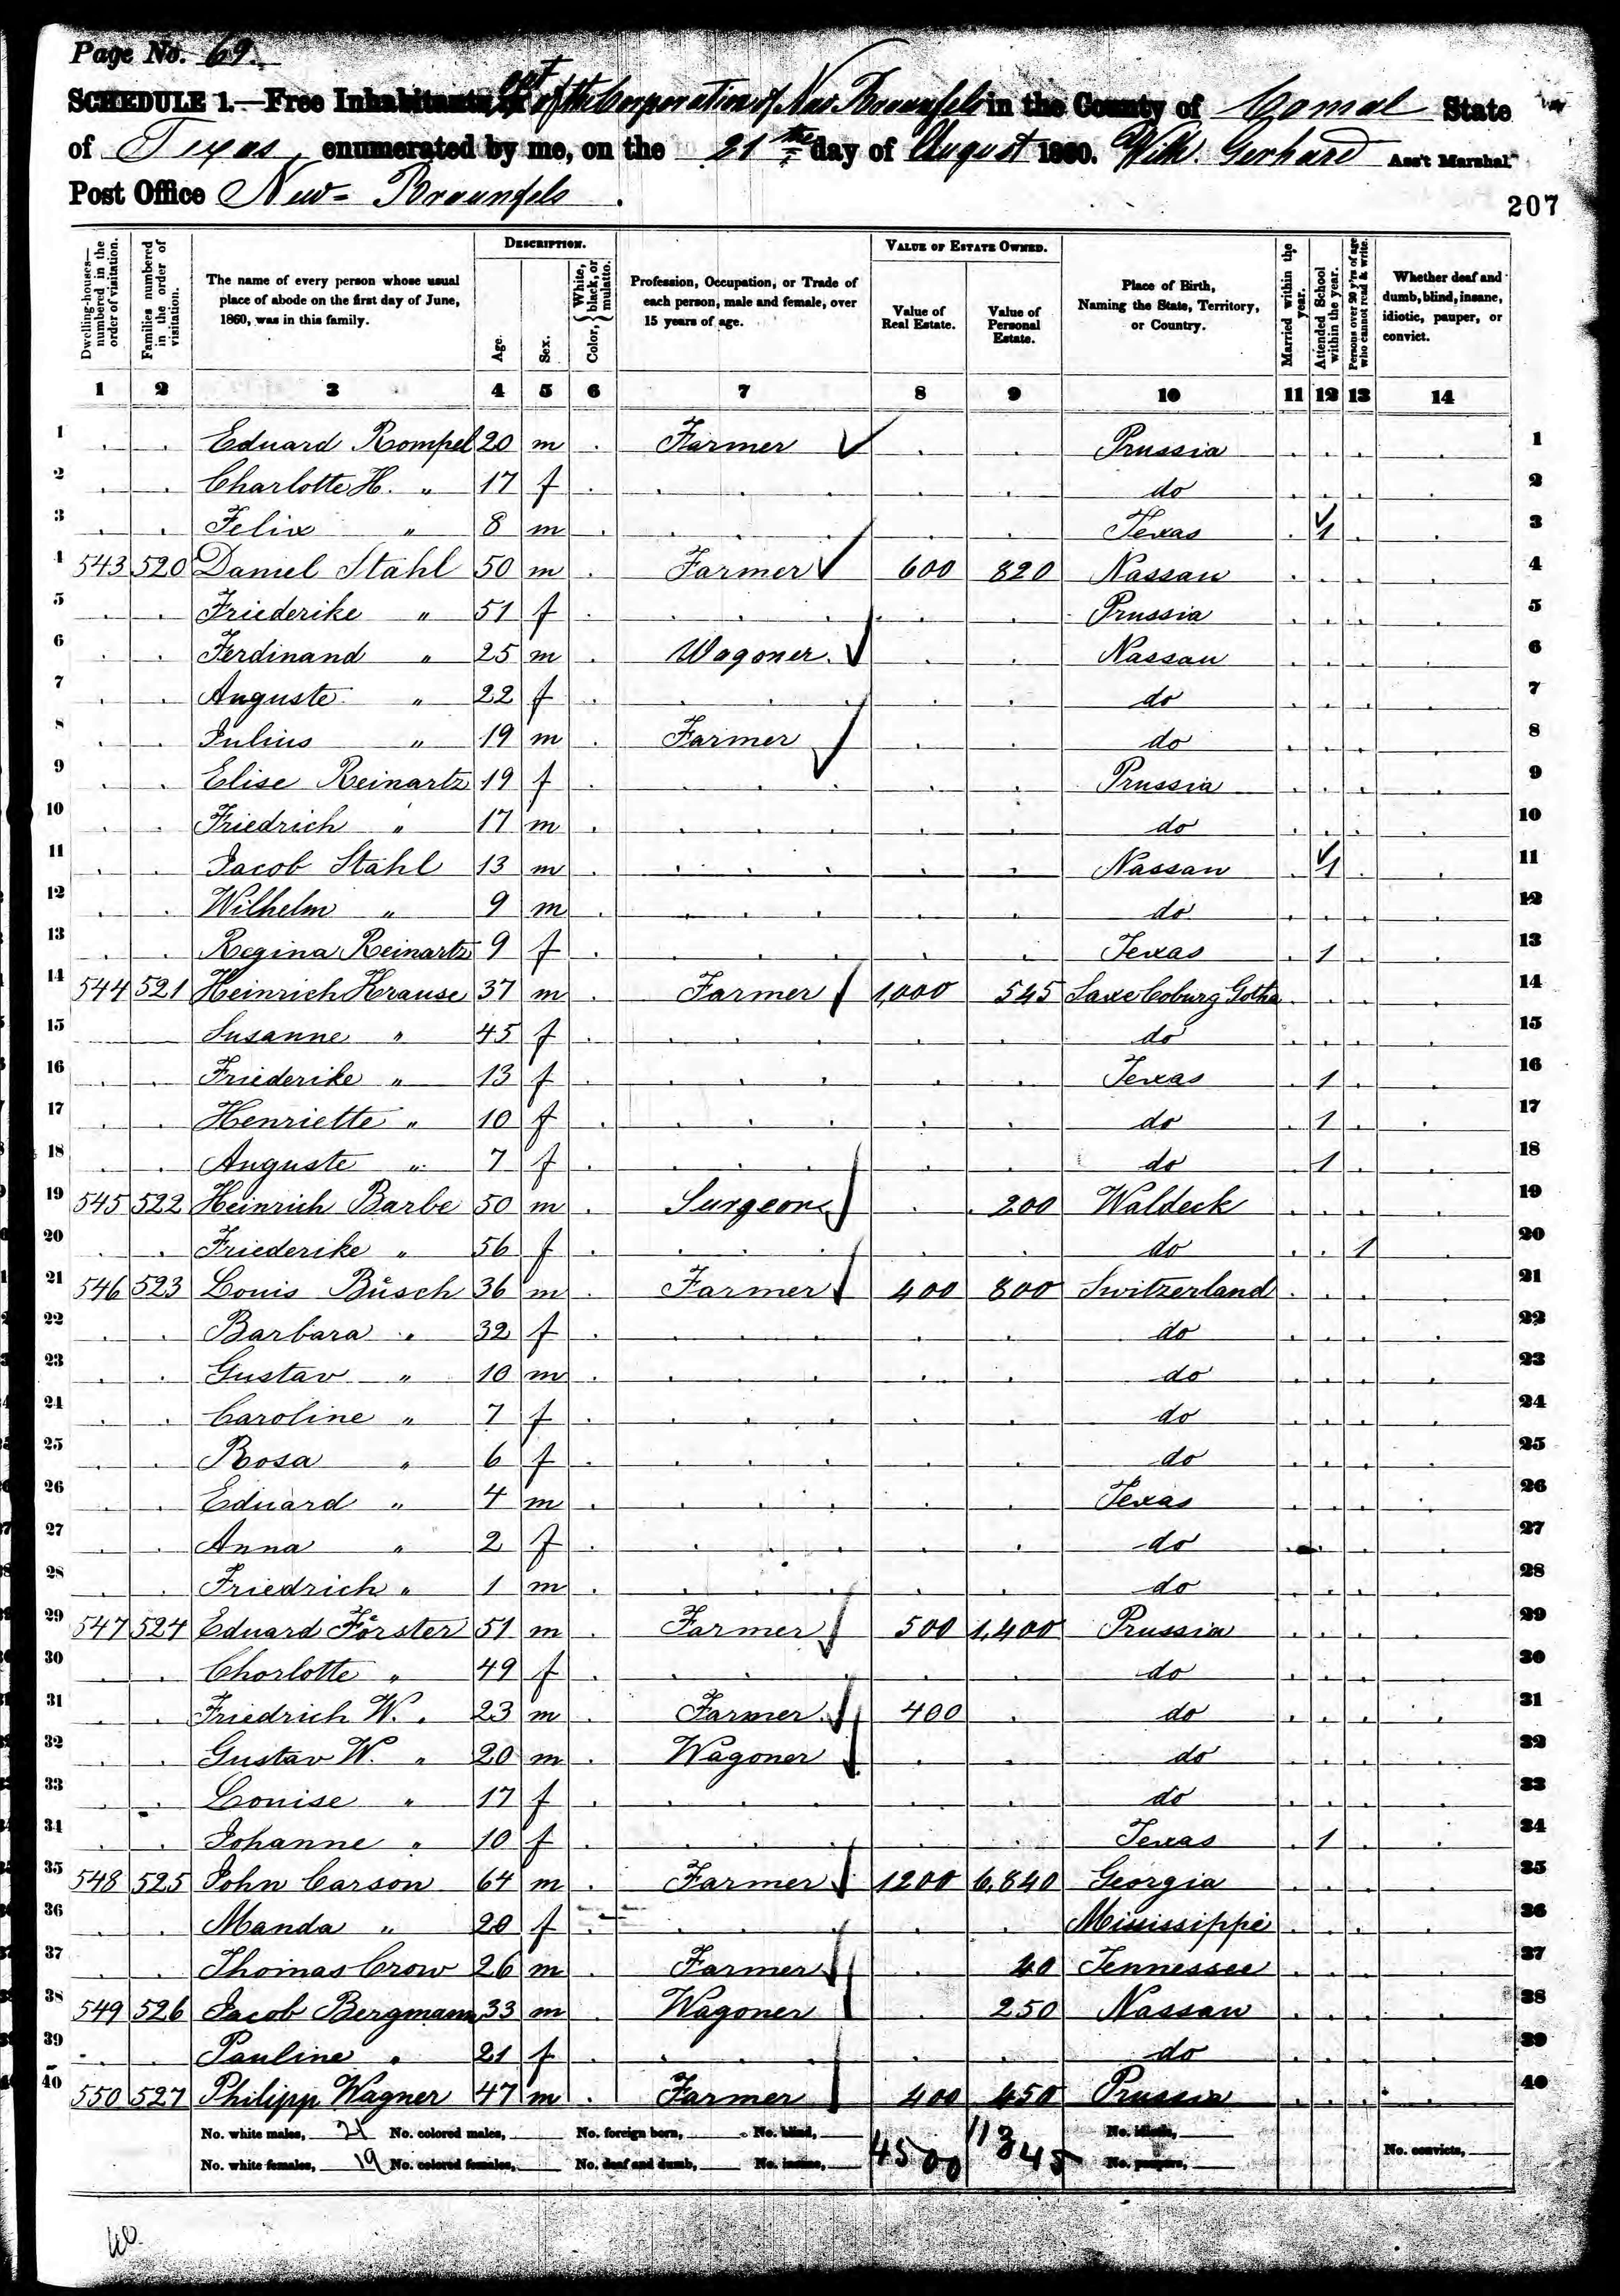 Page No. 69.
SCHEDULE 1.—Free Inhabitants in out of the Corporation of New Braunfels in the County of Comal State
of Texas enumerated by me, on the 21st day of August 1860. Wilh. Gerhard Ass't Marshal.
Post Office New-Braunfels.
207
Dwelling-houses—numbered in the order of visitation.
Families numbered in the order of visitation.
The name of every person whose usual place of abode on the first day of June, 1860, was in this family.
DESCRIPTION.
Age.
Sex.
Color, { White, black, or mulatto.
Profession, Occupation, or Trade of each person, male and female, over 15 years of age.
VALUE OF ESTATE OWNED.
Value of Real Estate.
Value of Personal Estate.
Place of Birth, Naming the State, Territory, or Country.
Married within the year.
Attended School within the year.
Persons over 20 y'rs of age who cannot read & write.
Whether deaf and dumb, blind, insane, idiotic, pauper, or convict.
1 2 3 4 5 6 7 8 9 10 11 12 13 14
1 Eduard Rompel 20 m Farmer Prussia 1
2 Charlotte H. " 17 f do 2
3 Felix " 8 m Texas 1 3
4 543 520 Daniel Stahl 50 m Farmer 600 820 Nassau 4
5 Friederike " 51 f Prussia 5
6 Ferdinand " 25 m Wagoner Nassau 6
7 Auguste " 22 f do 7
8 Julius " 19 m Farmer do 8
9 Elise Reinartz 19 f Prussia 9
10 Friedrich " 17 m do 10
11 Jacob Stahl 13 m Nassau 1 11
12 Wilhelm " 9 m do 12
13 Regina Reinartz 9 f Texas 1 13
14 544 521 Heinrich Krause 37 m Farmer 1,000 545 Saxe Coburg Gotha 14
15 Susanne " 45 f do 15
16 Friederike " 13 f Texas 1 16
17 Henriette " 10 f do 1 17
18 Auguste " 7 f do 1 18
19 545 522 Heinrich Barbe 50 m Surgeon 200 Waldeck 19
20 Friederike " 56 f do 1 20
21 546 523 Louis Büsch 36 m Farmer 400 800 Switzerland 21
22 Barbara " 32 f do 22
23 Gustav " 10 m do 23
24 Caroline " 7 f do 24
25 Rosa " 6 f do 25
26 Eduard " 4 m Texas 26
27 Anna " 2 f do 27
28 Friedrich " 1 m do 28
29 547 524 Eduard Förster 51 m Farmer 500 1,400 Prussia 29
30 Chorlotte " 49 f do 30
31 Friedrich W. " 23 m Farmer 400 do 31
32 Gustav W. " 20 m Wagoner do 32
33 Louise " 17 f do 33
34 Johanne " 10 f Texas 1 34
35 548 525 John Carson 64 m Farmer 1200 6,840 Georgia 35
36 Manda " 20 f Mississippi 36
37 Thomas Crow 26 m Farmer 40 Tennessee 37
38 549 526 Jacob Bergmann 33 m Wagoner 250 Nassau 38
39 Pauline " 21 f do 39
40 550 527 Philipp Wagner 47 m Farmer 400 450 Prussia 40
No. white males, 21 No. colored males, No. foreign born, No. blind, 4500 11345 No. idiotic,
No. white females, 19 No. colored females, No. deaf and dumb, No. insane, No. paupers, No. convicts,
40